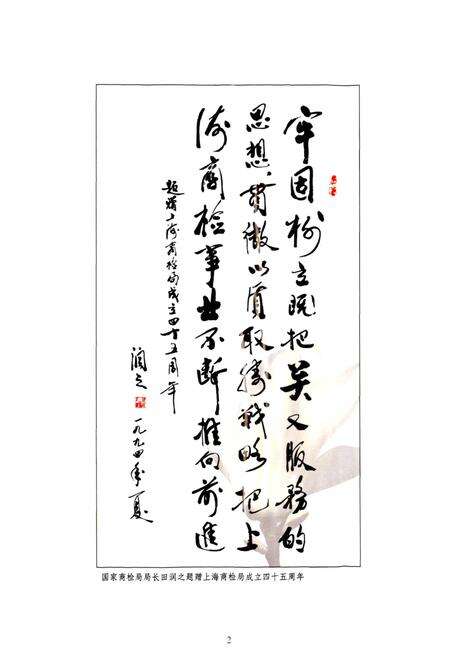 牢固树立既把关又服務的
思想，貫徹以质取勝戰略把上
海商检事业不断推向前進
题赠上海商检局成立四十五周年
润之
一九九四年夏
国家商检局局长田润之题赠上海商检局成立四十五周年
2